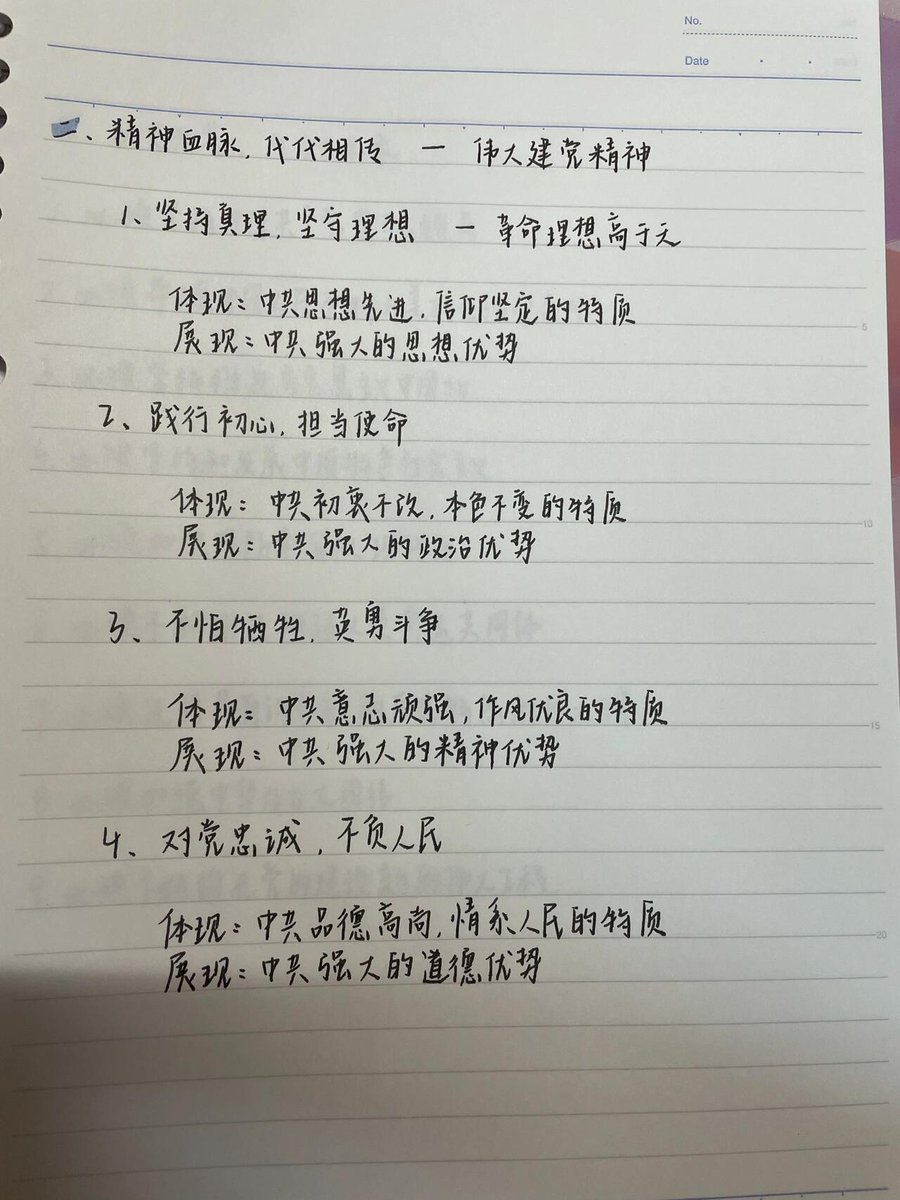 No.
Date
一、精神血脉,代代相传 — 伟大建党精神
1、坚持真理,坚守理想 — 革命理想高于天
体现:中共思想先进,信仰坚定的特质
展现:中共强大的思想优势
5
2、践行初心,担当使命
体现:中共初衷不改,本色不变的特质
10
展现:中共强大的政治优势
3、不怕牺牲,英勇斗争
体现:中共意志顽强,作风优良的特质
15
展现:中共强大的精神优势
4、对党忠诚,不负人民
体现:中共品德高尚,情系人民的特质
20
展现:中共强大的道德优势